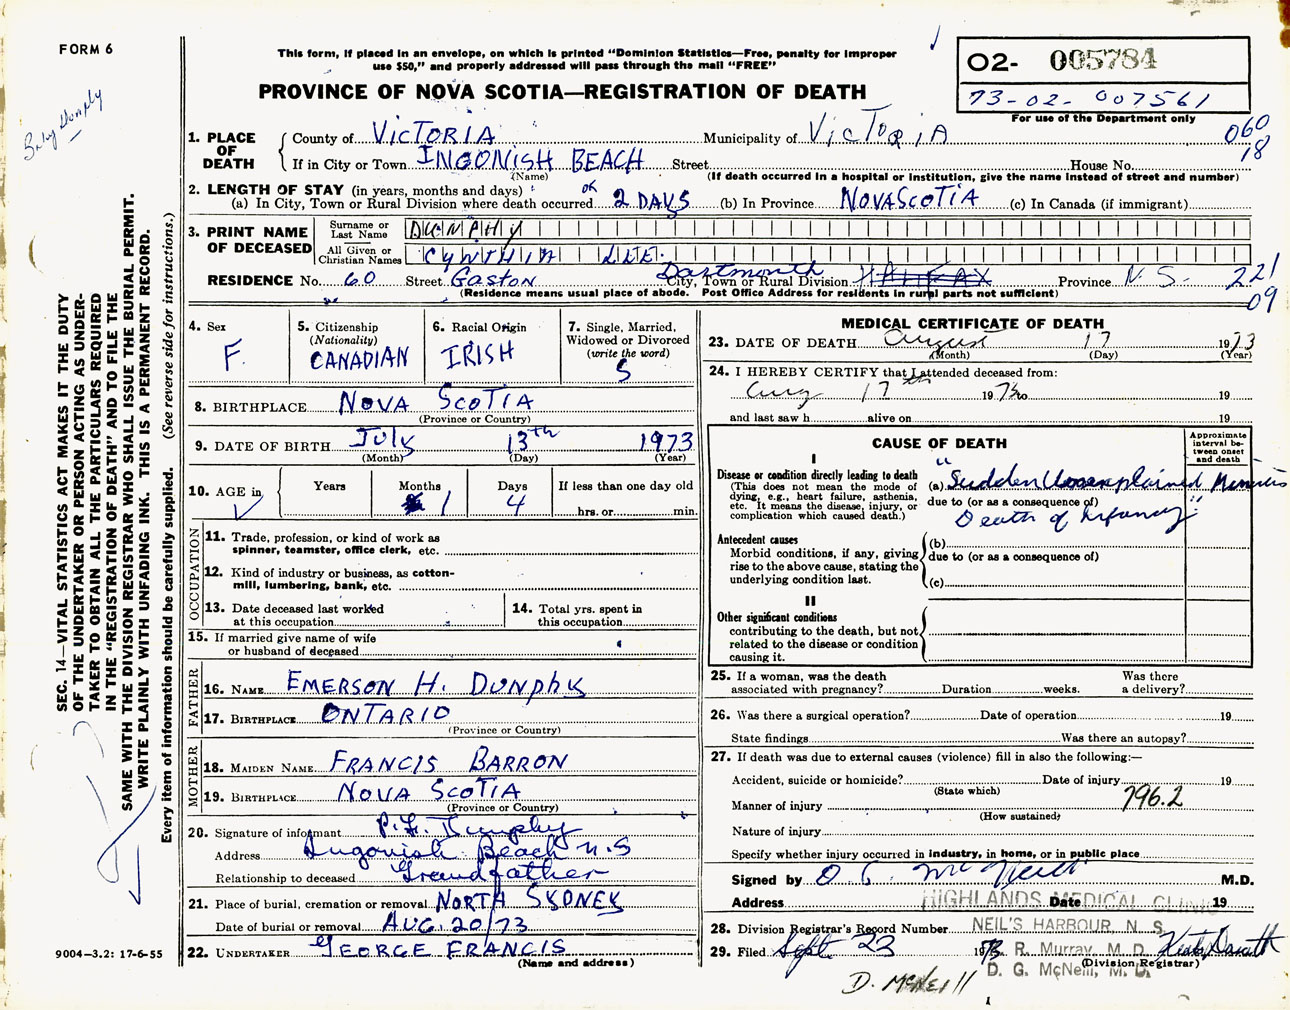 FORM 6
Baby Dunphy
This form, if placed in an envelope, on which is printed "Dominion Statistics—Free, penalty for improper
use $50," and properly addressed will pass through the mail "FREE"
PROVINCE OF NOVA SCOTIA—REGISTRATION OF DEATH
02- 005784
73-02-007561
For use of the Department only
060
18
SEC. 14—VITAL STATISTICS ACT MAKES IT THE DUTY
OF THE UNDERTAKER OR PERSON ACTING AS UNDER-
TAKER TO OBTAIN ALL THE PARTICULARS REQUIRED
IN THE "REGISTRATION OF DEATH" AND TO FILE THE
SAME WITH THE DIVISION REGISTRAR WHO SHALL ISSUE THE BURIAL PERMIT.
WRITE PLAINLY WITH UNFADING INK. THIS IS A PERMANENT RECORD.
Every item of information should be carefully supplied. (See reverse side for instructions.)
1. PLACE OF DEATH
County of VICTORIA Municipality of VICTORIA
If in City or Town INGONISH BEACH Street House No.
(Name) (If death occurred in a hospital or institution, give the name instead of street and number)
2. LENGTH OF STAY (in years, months and days) or
(a) In City, Town or Rural Division where death occurred 2 DAYS (b) In Province NOVA SCOTIA (c) In Canada (if immigrant)
3. PRINT NAME OF DECEASED
Surname or Last Name DUNPHY
All Given or Christian Names CYNTHIA LEE.
RESIDENCE No. 60 Street Gaston City, Town or Rural Division Dartmouth HALIFAX Province N.S. 221
09
(Residence means usual place of abode. Post Office Address for residents in rural parts not sufficient)
4. Sex
F.
5. Citizenship
(Nationality)
CANADIAN
6. Racial Origin
IRISH
7. Single, Married,
Widowed or Divorced
(write the word)
S
8. BIRTHPLACE NOVA SCOTIA
(Province or Country)
9. DATE OF BIRTH July 13th 1973
(Month) (Day) (Year)
10. AGE in
Years Months Days If less than one day old
1 4 hrs. or min.
OCCUPATION
11. Trade, profession, or kind of work as
spinner, teamster, office clerk, etc.
12. Kind of industry or business, as cotton-
mill, lumbering, bank, etc.
13. Date deceased last worked
at this occupation
14. Total yrs. spent in
this occupation
15. If married give name of wife
or husband of deceased
FATHER
16. NAME EMERSON H. DUNPHY
17. BIRTHPLACE ONTARIO
(Province or Country)
MOTHER
18. MAIDEN NAME FRANCIS BARRON
19. BIRTHPLACE NOVA SCOTIA
(Province or Country)
20. Signature of informant Dunphy
Address Ingonish Beach N.S
Relationship to deceased Grandfather
21. Place of burial, cremation or removal NORTH SYDNEY
Date of burial or removal AUG. 20/73
22. UNDERTAKER GEORGE FRANCIS
(Name and address)
9004—3.2: 17-6-55
MEDICAL CERTIFICATE OF DEATH
23. DATE OF DEATH August 17 1973
(Month) (Day) (Year)
24. I HEREBY CERTIFY that I attended deceased from:
Aug 17th 1973 to 19
and last saw h alive on 19
CAUSE OF DEATH
Approximate
interval be-
tween onset
and death
I
Disease or condition directly leading to death
(This does not mean the mode of
dying, e.g., heart failure, asthenia,
etc. It means the disease, injury, or
complication which caused death.)
(a) "Sudden Unexplained Minutes
due to (or as a consequence of)
Death of Infancy"
Antecedent causes
Morbid conditions, if any, giving
rise to the above cause, stating the
underlying condition last.
(b)
due to (or as a consequence of)
(c)
II
Other significant conditions
contributing to the death, but not
related to the disease or condition
causing it.
25. If a woman, was the death
associated with pregnancy? Duration weeks. Was there
a delivery?
26. Was there a surgical operation? Date of operation 19
State findings Was there an autopsy?
27. If death was due to external causes (violence) fill in also the following:—
Accident, suicide or homicide? Date of injury 19
(State which)
796.2
Manner of injury
(How sustained)
Nature of injury
Specify whether injury occurred in industry, in home, or in public place
Signed by McNeill M.D.
Address HIGHLANDS MEDICAL CLINIC Date 19
28. Division Registrar's Record Number NEIL'S HARBOUR, N. S.
29. Filed Sept 23 1973 R. Murray, M. D.
(Division Registrar)
D. G. McNeill, M. D.
D. McNeill